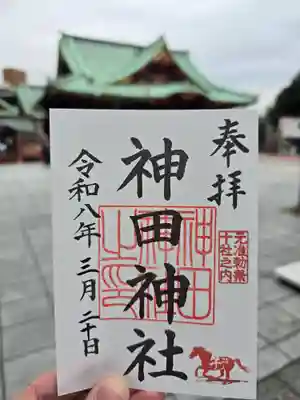 奉拝
元准勅祭
十社之内
神田神社
神田
神社
之印
令和八年 三月 二十日